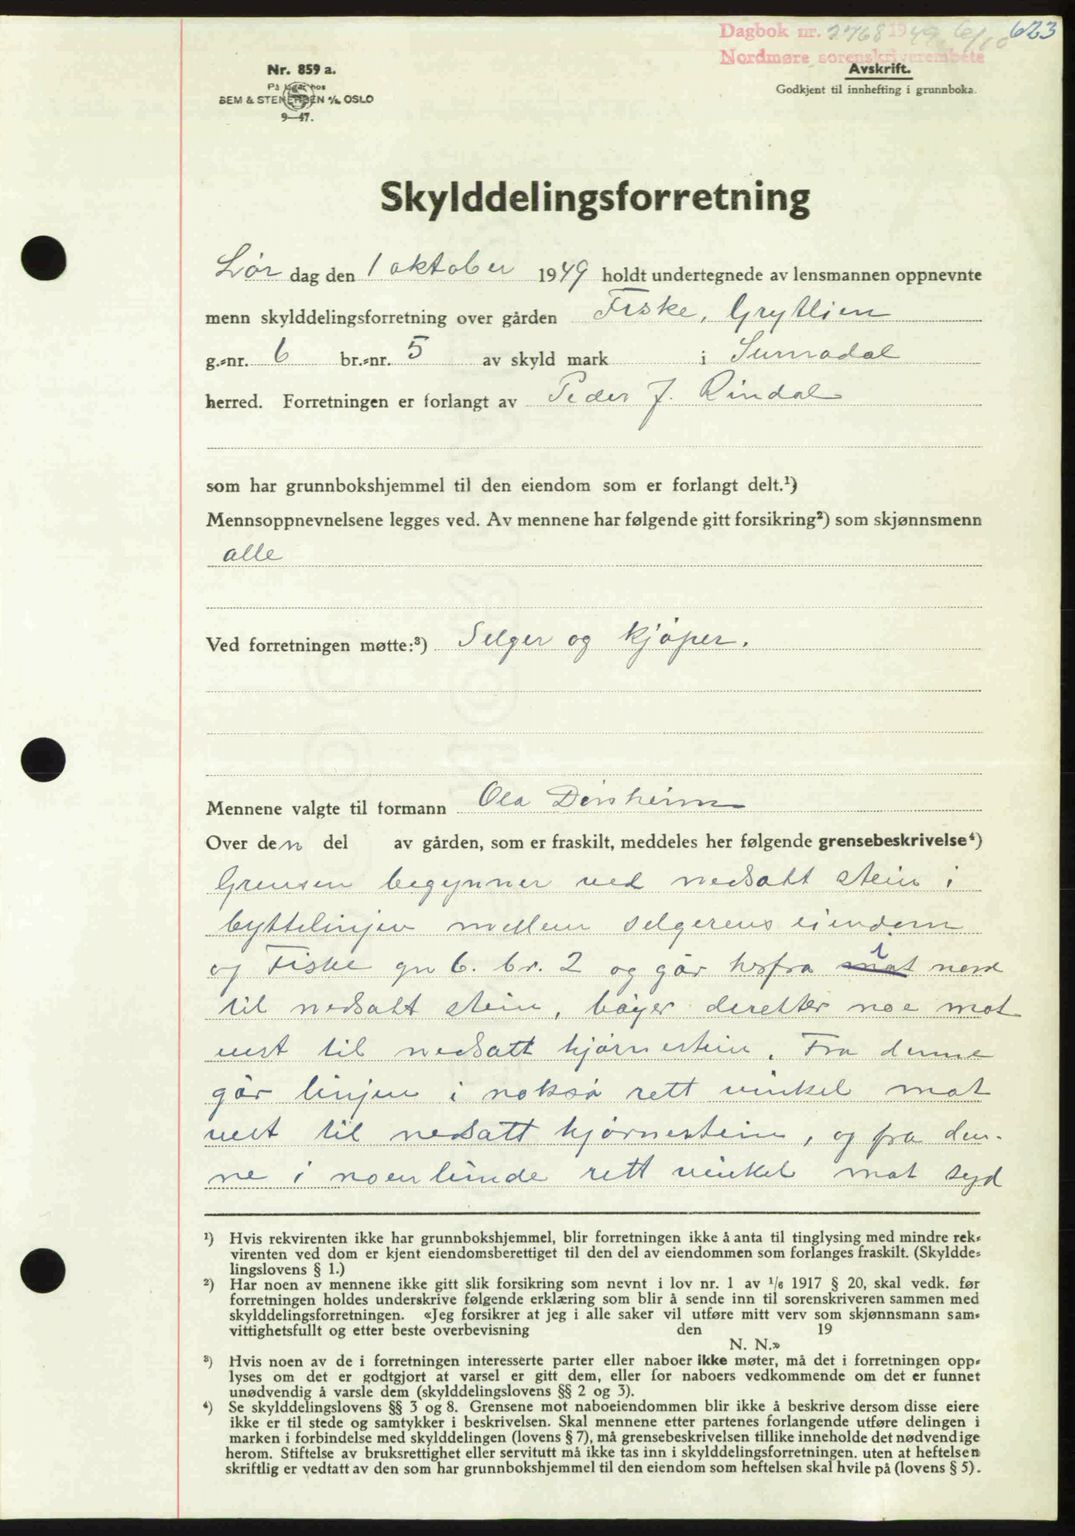 Dagbok nr. 2768 1949 6/10 623
Nordmøre sorenskriverembete
Nr. 859 a.
På lager hos
SEM & STENERSEN A/S, OSLO
9—47.
Avskrift.
Godkjent til innhefting i grunnboka.
Skylddelingsforretning
Lør dag den 1 oktober 1949 holdt undertegnede av lensmannen oppnevnte
menn skylddelingsforretning over gården Fiske, Gryttlien
g.-nr. 6 br.-nr. 5 av skyld mark i Surnadal
herred. Forretningen er forlangt av Peder J. Rindal
som har grunnbokshjemmel til den eiendom som er forlangt delt.¹)
Mennsoppnevnelsene legges ved. Av mennene har følgende gitt forsikring²) som skjønnsmenn
alle
Ved forretningen møtte:³) Selger og kjøper.
Mennene valgte til formann Ola
Over den del av gården, som er fraskilt, meddeles her følgende grensebeskrivelse⁴)
Grensen begynner ved nedsatt stein i
byttelinjen mellem selgerens eiendom
og Fiske gn 6. br. 2 og går herfra i nord
til nedsatt stein, bøyer deretter noe mot
vest til nedsatt hjørnestein. Fra denne
går linjen i nokså rett vinkel mot
vest til nedsatt hjørnestein, og fra den-
ne i noenlunde rett vinkel mot syd
¹) Hvis rekvirenten ikke har grunnbokshjemmel, blir forretningen ikke å anta til tinglysing med mindre rek-
virenten ved dom er kjent eiendomsberettiget til den del av eiendommen som forlanges fraskilt. (Skyldde-
lingslovens § 1.)
²) Har noen av mennene ikke gitt slik forsikring som nevnt i lov nr. 1 av 1/6 1917 § 20, skal vedk. før
forretningen holdes underskrive følgende erklæring som blir å sende inn til sorenskriveren sammen med
skylddelingsforretningen. «Jeg forsikrer at jeg i alle saker vil utføre mitt verv som skjønnsmann sam-
vittighetsfullt og etter beste overbevisning den 19
N. N.»
³) Hvis noen av de i forretningen interesserte parter eller naboer ikke møter, må det i forretningen opp-
lyses om det er godtgjort at varsel er gitt dem, eller for naboers vedkommende om det er funnet
unødvendig å varsle dem (skylddelingslovens §§ 2 og 3).
⁴) Se skylddelingslovens §§ 3 og 8. Grensene mot naboeiendommen blir ikke å beskrive dersom disse eiere
ikke er til stede og samtykker i beskrivelsen. Skal mennene etter partenes forlangende utføre delingen i
marken i forbindelse med skylddelingen (lovens § 7), må grensebeskrivelsen tillike inneholde det nødvendige
herom. Stiftelse av bruksrettighet eller servitutt må ikke tas inn i skylddelingsforretningen, uten at heftelsen
skriftlig er vedtatt av den som har grunnbokshjemmel til den eiendom som heftelsen skal hvile på (lovens § 5).